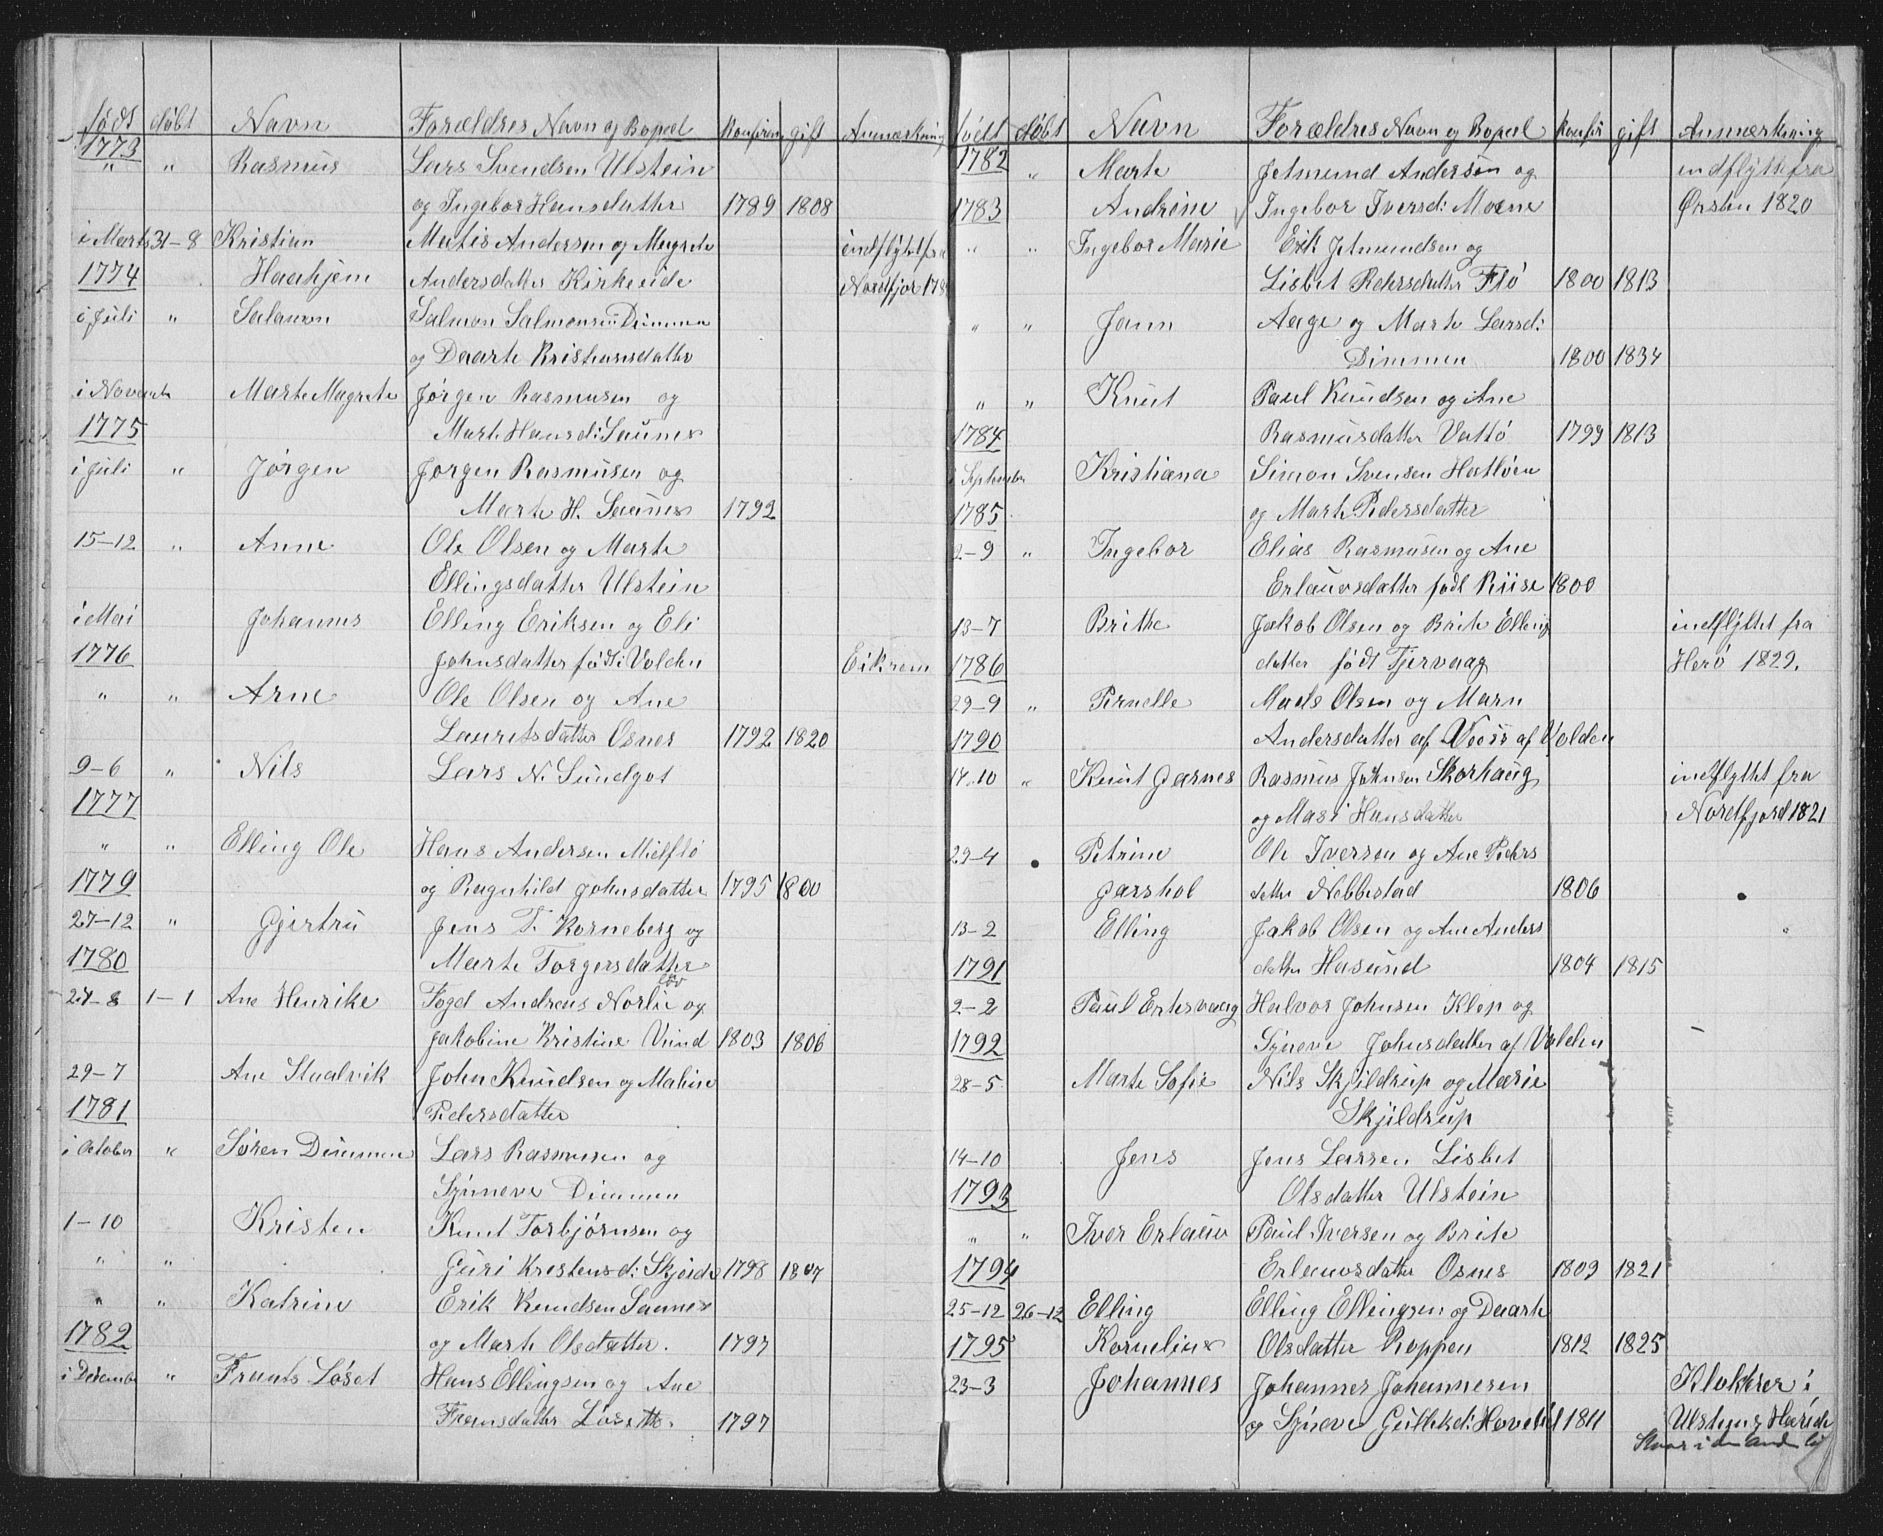 født døbt Navn Forældres Navn og Bopæl Konfirm gift Anmærkning
1773
" " Rasmus Lars Svendsen Ulstein
og Ingebor Hansdatter 1789 1808
i Marts 31-8 Kristian Matis Andersen og Magrete indflytet fra
1774 Haahjem Andersdatter Kirkeeide Nordfjor 178
i Juli " Salamon Salmon Salmonsen Dimmen
og Daarte Kristiansdatter
i Novemb Marte Magrete Jørgen Rasmusen og
1775 Marte Hansd: Saunes
i Juli " Jørgen Jørgen Rasmusen og
Marte H. Saunes 1792
15-12 " Anne Ole Olsen og Marte
Ellingsdatter Ulstein
i Mai Johannes Elling Eriksen og Eli
1776 Johnsdatter født i Volden Eikrem
" " Arne Ole Olsen og Ane
Lauritsdatter Osnes 1792 1820
9-6 " Nils Lars N. Sundgot
1777
" " Elling Ole Hans Andersen Mielflø
1779 og Ragnhild Johnsdatter 1795 1800
27-12 " Gjertru Jens T. Korneberg og
1780 Marte Torgersdatter
24-8 1-1 Ane Henrike Fogd Andreas Norlie og
Jakobine Kristine Vind 1803 1806
29-7 Ane Staalvik John Knudsen og Malene
1781 Pedersdatter
i October " Søren Dimmen Lars Rasmusen og
Synneve Dimmen
1-10 Kristen Knut Torbjørnsen og
" " Guri Krestensd: Skjeide 1798 1807
" " Katrine Erik Knudsen Saunes
1782 og Marte Olsdatter. 1797
i Desember " Frants Løset Hans Ellingsen og Ane
Fransdatter Løsett. 1797
født døbt Navn Forældres Navn og Bopæl Konfir gift Anmærkning
1782 " Marte Jetmund Andersen og indflytte fra
1783 Andrine Ingebor Iversd: Moene Ørsten 1820
" " Ingebor Marie Erik Jetmundsen og
Lisbet Pedersdatter Flø 1800 1813
" " Jann Aage og Marte Larsd:
Dimmen 1800 1834
" " Knut Paul Knudsen og Ane
1784 Rasmusdatter Vattø 1799 1813
i September Kristiana Simon Svensen Hatløen
1785 og Marte Pedersdatter
2-9 " Ingebor Elias Rasmusen og Ane
Erlauvsdatter født Riise 1800
13-7 Brithe Jakob Olsen og Brite Elling indflyttet fra
1786 datter født Tjervaag Herø 1829.
29-9 " Pernelle Mads Olsen og Marn
1790 Andersdatter af Voss af Volden
14.10 " Knut Garnes Rasmus Johnsen Skorhaug indflyttet fra
og Masi Hansdatter Nordfjord 1821
29-4 Petrine Ole Iversen og Ane Peders
Garshol datter Nebbestad 1806
13-2 Elling Jakob Olsen og Ane Anders "
1791 datter Hasund 1804 1815
2-2 Paul Eiksvaag Halvor Johnsen Klop og
1792 Synneve Johnsdatter af Volden
28-5 Marte Sofie Nils Skjildrup og Marie
Skjildrup
14-10 Jens Jens Larsen Lisbet
1793 Olsdatter Ulstein
" " Iver Erlauv Paul Iversen og Brite
1794 Erlauvsdatter Osnes 1809 1821
25-12 26-12 Elling Elling Ellingsen og Daarte
1795 Kornelius Olsdatter Roppen 1812 1825
23-3 Johannes Johannes Johannesen Klokker i
og Synneve Gullikd: Hovela 1811 Ulsten og Hareide